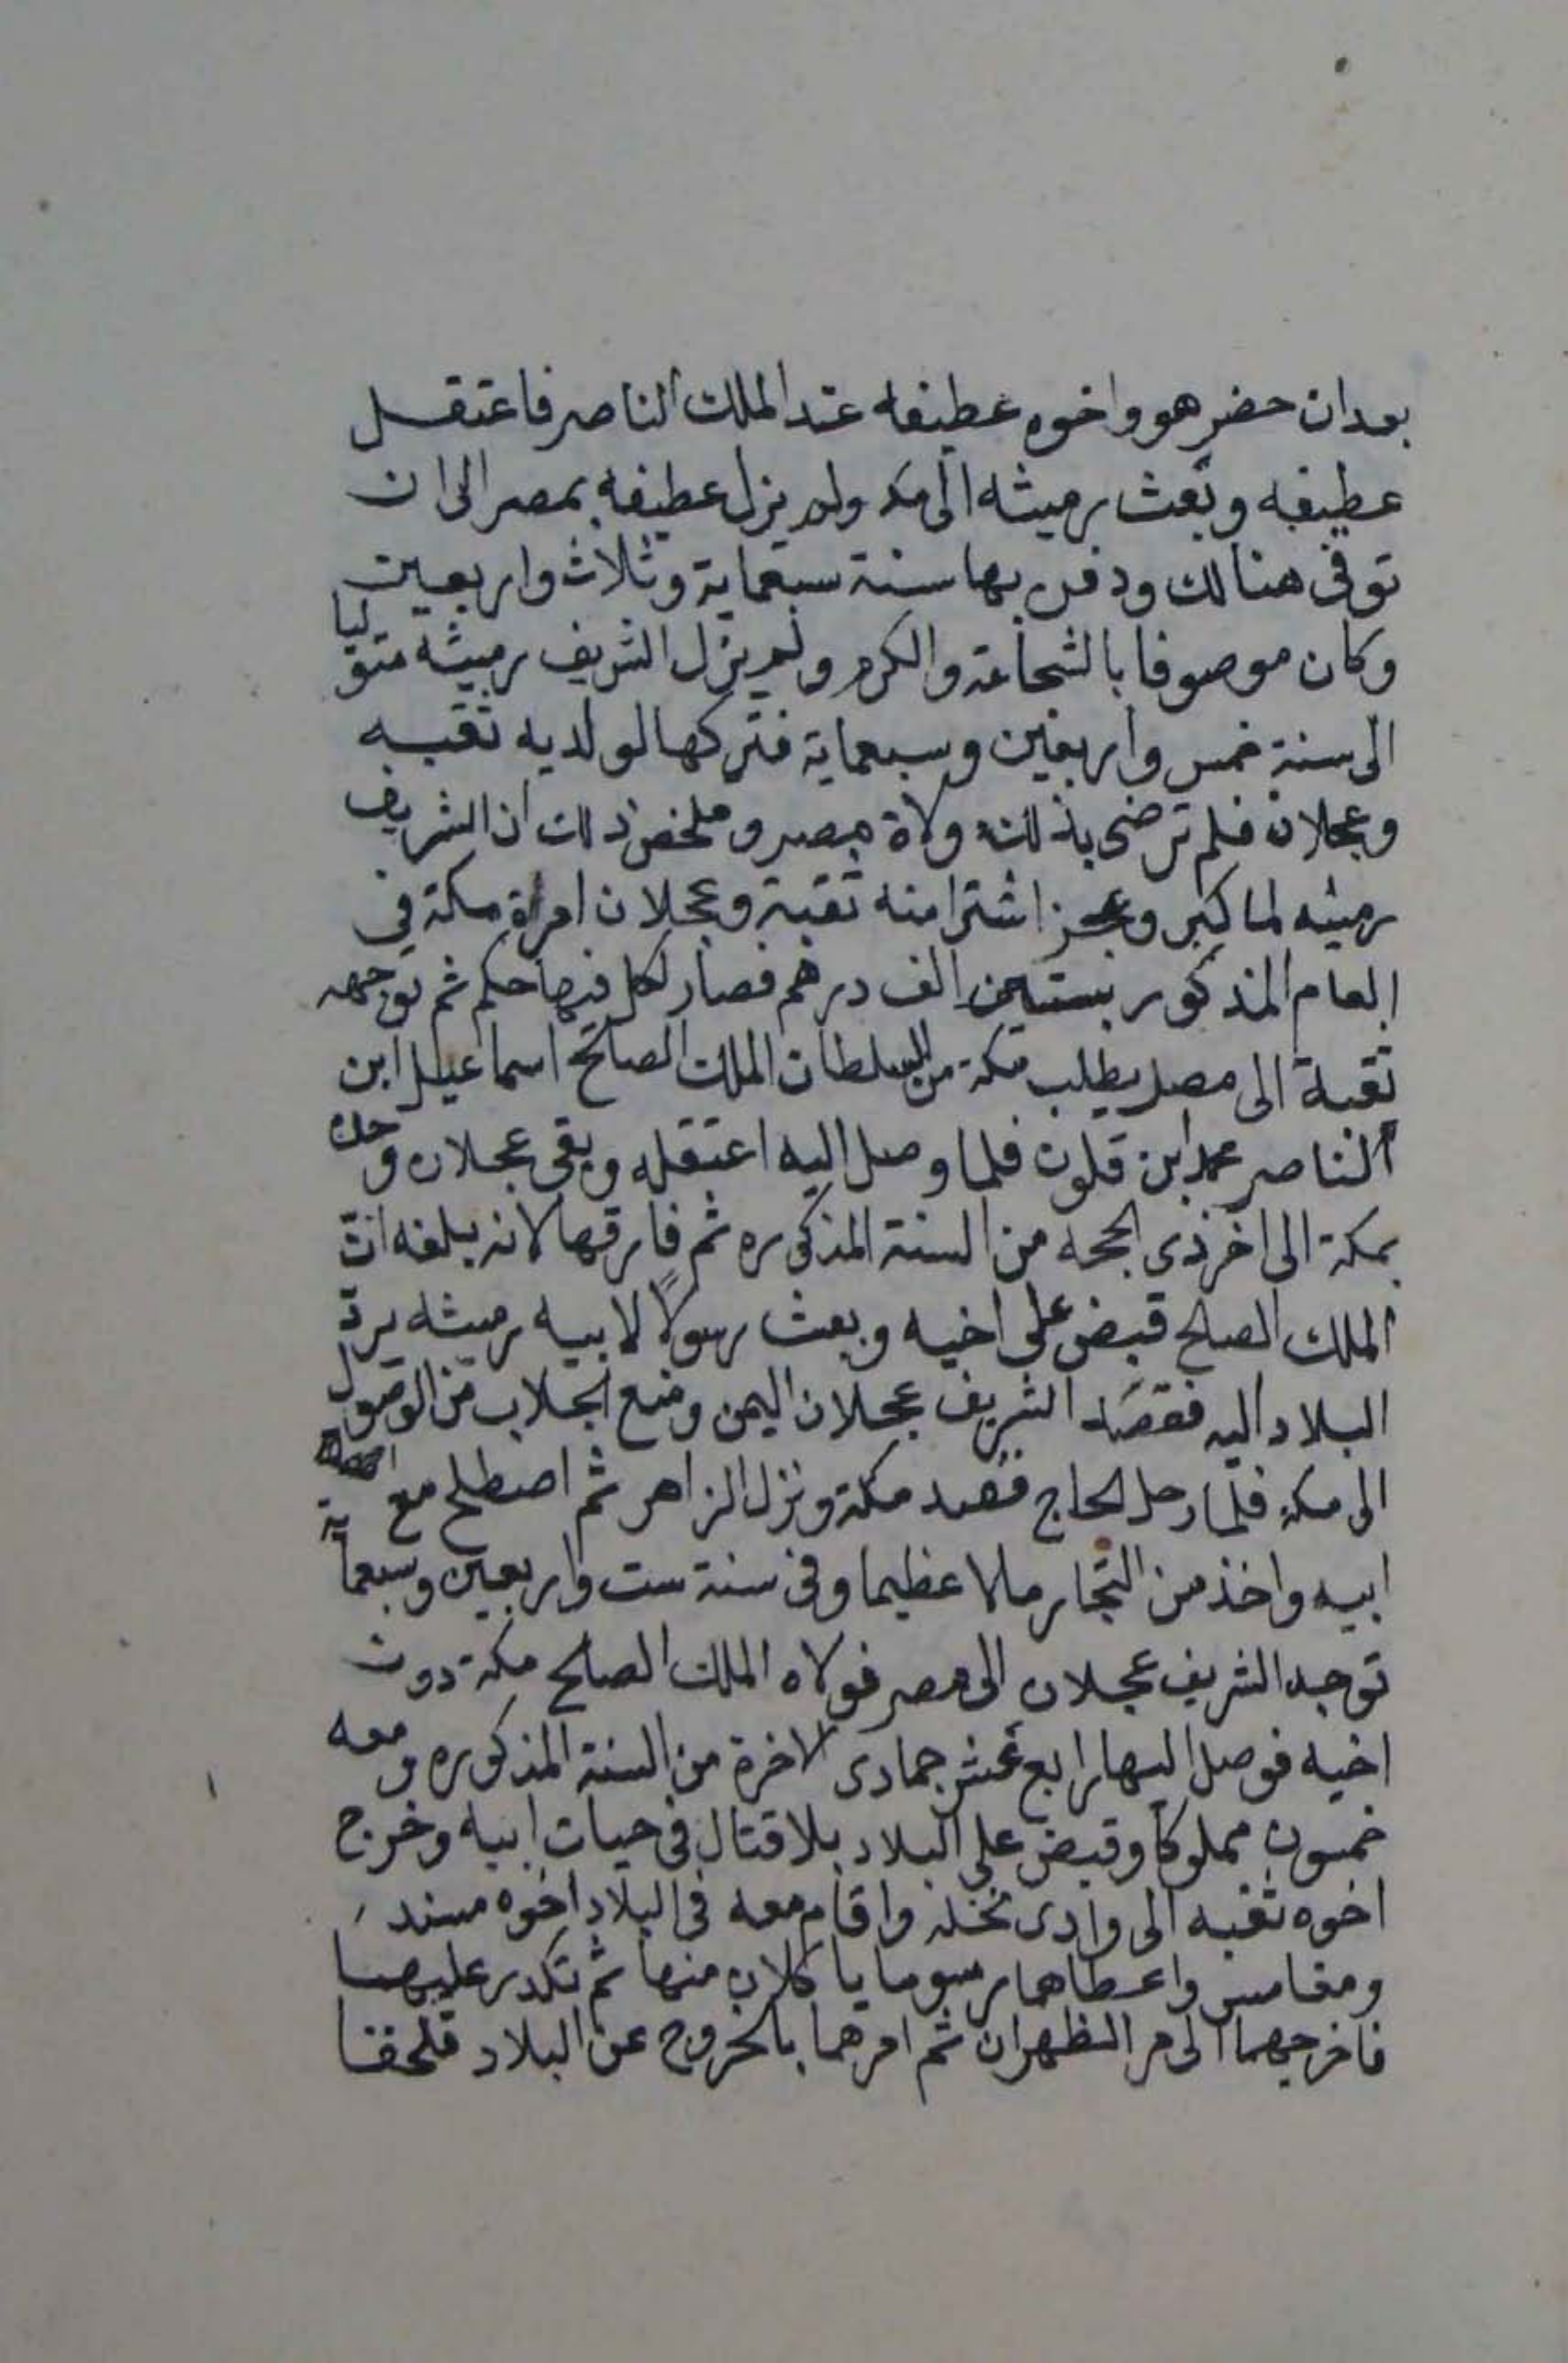 بعد ان حضر هو واخوه عطيفه عند الملك الناصر فاعتقل
عطيفه وبعث رميثه الى مكه ولم يزل عطيفه بمصر الى ان
توفى هنالك ودفن بها سنة سبعماية وثلاث واربعين
وكان موصوفا بالشجاعة والكرم ولم يزل الشريف رميثه متوليا
الى سنة خمس واربعين وسبعماية فتركها لولديه ثقبه
وعجلان فلم ترضى بذلك ولاة مصر وملخص ذلك ان الشريف
رميثه لما كبر وعجز اشترا منه ثقبة وعجلان امراة مكة في
العام المذكور بستين الف درهم فصار لكل فيها حكم ثم توجهه
ثقبة الى مصر يطلب مكة من السلطان الملك الصالح اسماعيل ابن
الناصر محمد ابن قلون فلما وصل اليه اعتقله وبقى عجلان وحده
بمكة الى اخر ذى الحجه من السنة المذكوره ثم فارقها لانه بلغه ان
الملك الصالح قبض على اخيه وبعث رسولاً لابيه رميثه يردّ
البلاد اليه فقصد الشريف عجلان اليمن ومنع الجلاب من الوصول
الى مكة فلما رحل الحاج قصد مكة ونزل الزاهر ثم اصطلح مع
ابيه واخذ من التجار مالا عظيما وفى سنة ست واربعين وسبعماية
توجه الشريف عجلان الى مصر فولاه الملك الصالح مكة دون
اخيه فوصل اليها رابع عشر جمادى الاخرة من السنة المذكوره ومعه
خمسون مملوكا وقبض على البلاد بلا قتال فى حيات ابيه وخرج
اخوه ثقبه الى وادى نخله واقام معه فى البلاد اخوه سند
ومغامس واعطاهما رسوما ياكلان منها ثم تكدر عليهما
فاخرجهما الى مر الظهران ثم امرهما بالخروج عن البلاد فلحقا